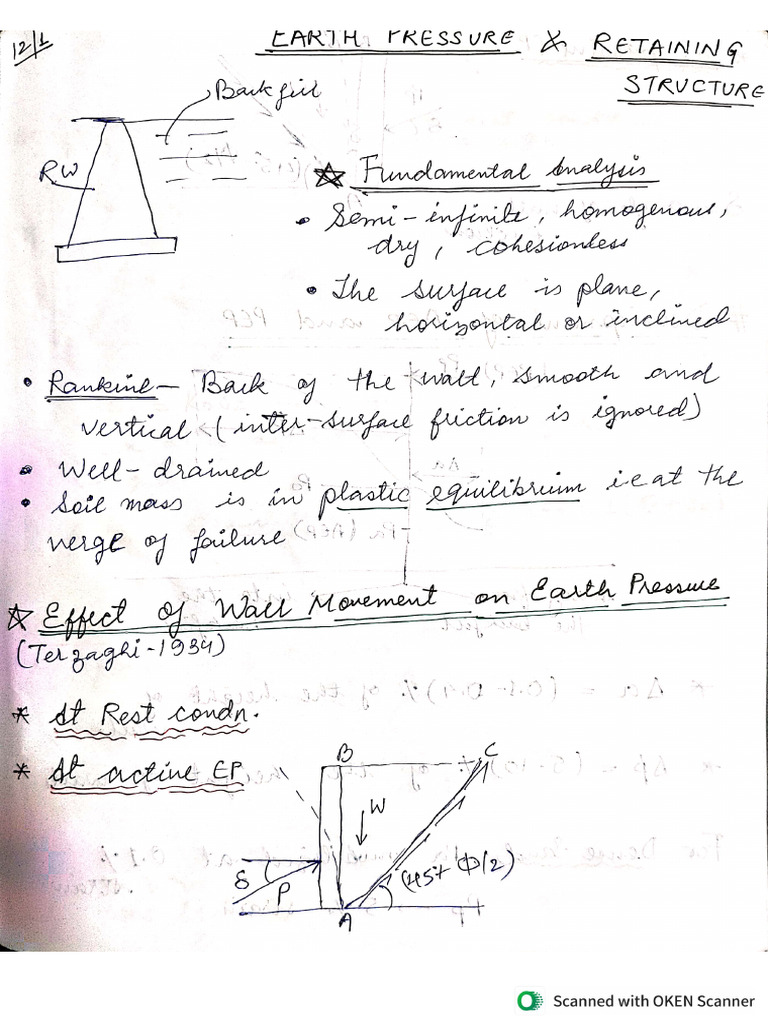 12/1
EARTH PRESSURE & RETAINING
STRUCTURE
Backfill
RW
Fundamental Analysis
• Semi-infinite, homogenous,
dry, cohesionless
• The surface is plane,
horizontal or inclined
• Rankine – Back of the wall, smooth and
vertical (inter-surface friction is ignored)
• Well-drained
• Soil mass is in plastic equilibrium i.e at the
verge of failure
Effect of Wall Movement on Earth Pressure
(Terzaghi-1934)
* At Rest condn.
* At active EP
B
C
W
δ
P
(45+ Φ/2)
A
Scanned with OKEN Scanner